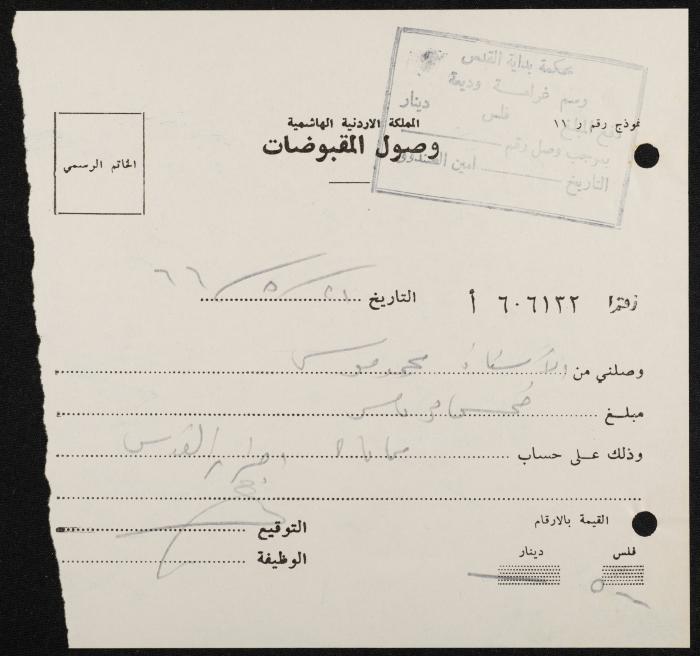 محكمة بداية القدس
رسم غرامة وديعة
فلس دينار
دفع المبلغ
بموجب وصل رقم
أمين الصندوق
التاريخ
نموذج رقم ر ١١
المملكة الاردنية الهاشمية
وصول المقبوضات
الخاتم الرسمي
٦٠٦١٣٢ أ
التاريخ ٢١/٥/٦٦
وصلني من الأستاذ محمود موسى
مبلغ
وذلك على حساب القدس
القيمة بالارقام
التوقيع
فلس دينار
الوظيفة